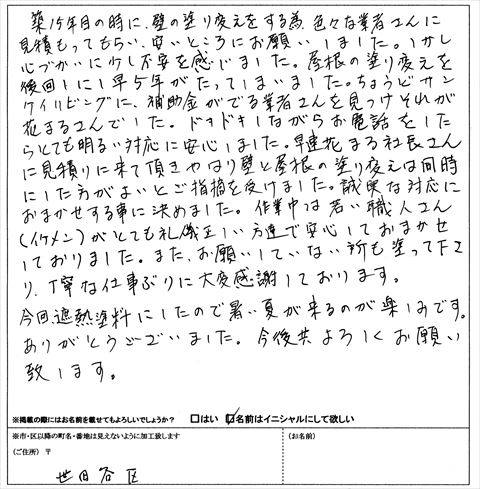 築15年目の時に、壁の塗り変えをする為、色々な業者さんに
見積もってもらい、安いところにお願いしました。しかし
心づかいに少し不安を感じました。屋根の塗り変えを
後回しにし早5年がたってしまいました。ちょうどサン
ケイリビングに、補助金がでる業者さんを見つけそれが
花まるさんでした。ドキドキしながらお電話をした
らとても明るい対応に安心しました。早速花まる社長さん
に見積りに来て頂きやはり壁と屋根の塗り変えは同時
にした方がよいとご指摘を受けました。誠実な対応に
おまかせする事に決めました。作業中は若い職人さん
(イケメン)がとても礼儀正しい方達で安心しておまかせ
しておりました。また、お願いしていない所も塗って下さ
り、丁寧な仕事ぶりに大変感謝しております。
今回、遮熱塗料にしたので暑い夏が来るのが楽しみです。
ありがとうございました。今後共よろしくお願い
致します。
※掲載の際にはお名前を載せてもよろしいでしょうか？ □はい ☑名前はイニシャルにして欲しい
※市・区以降の町名・番地は見えないように加工致します
(ご住所) 〒
(お名前)
世田谷区